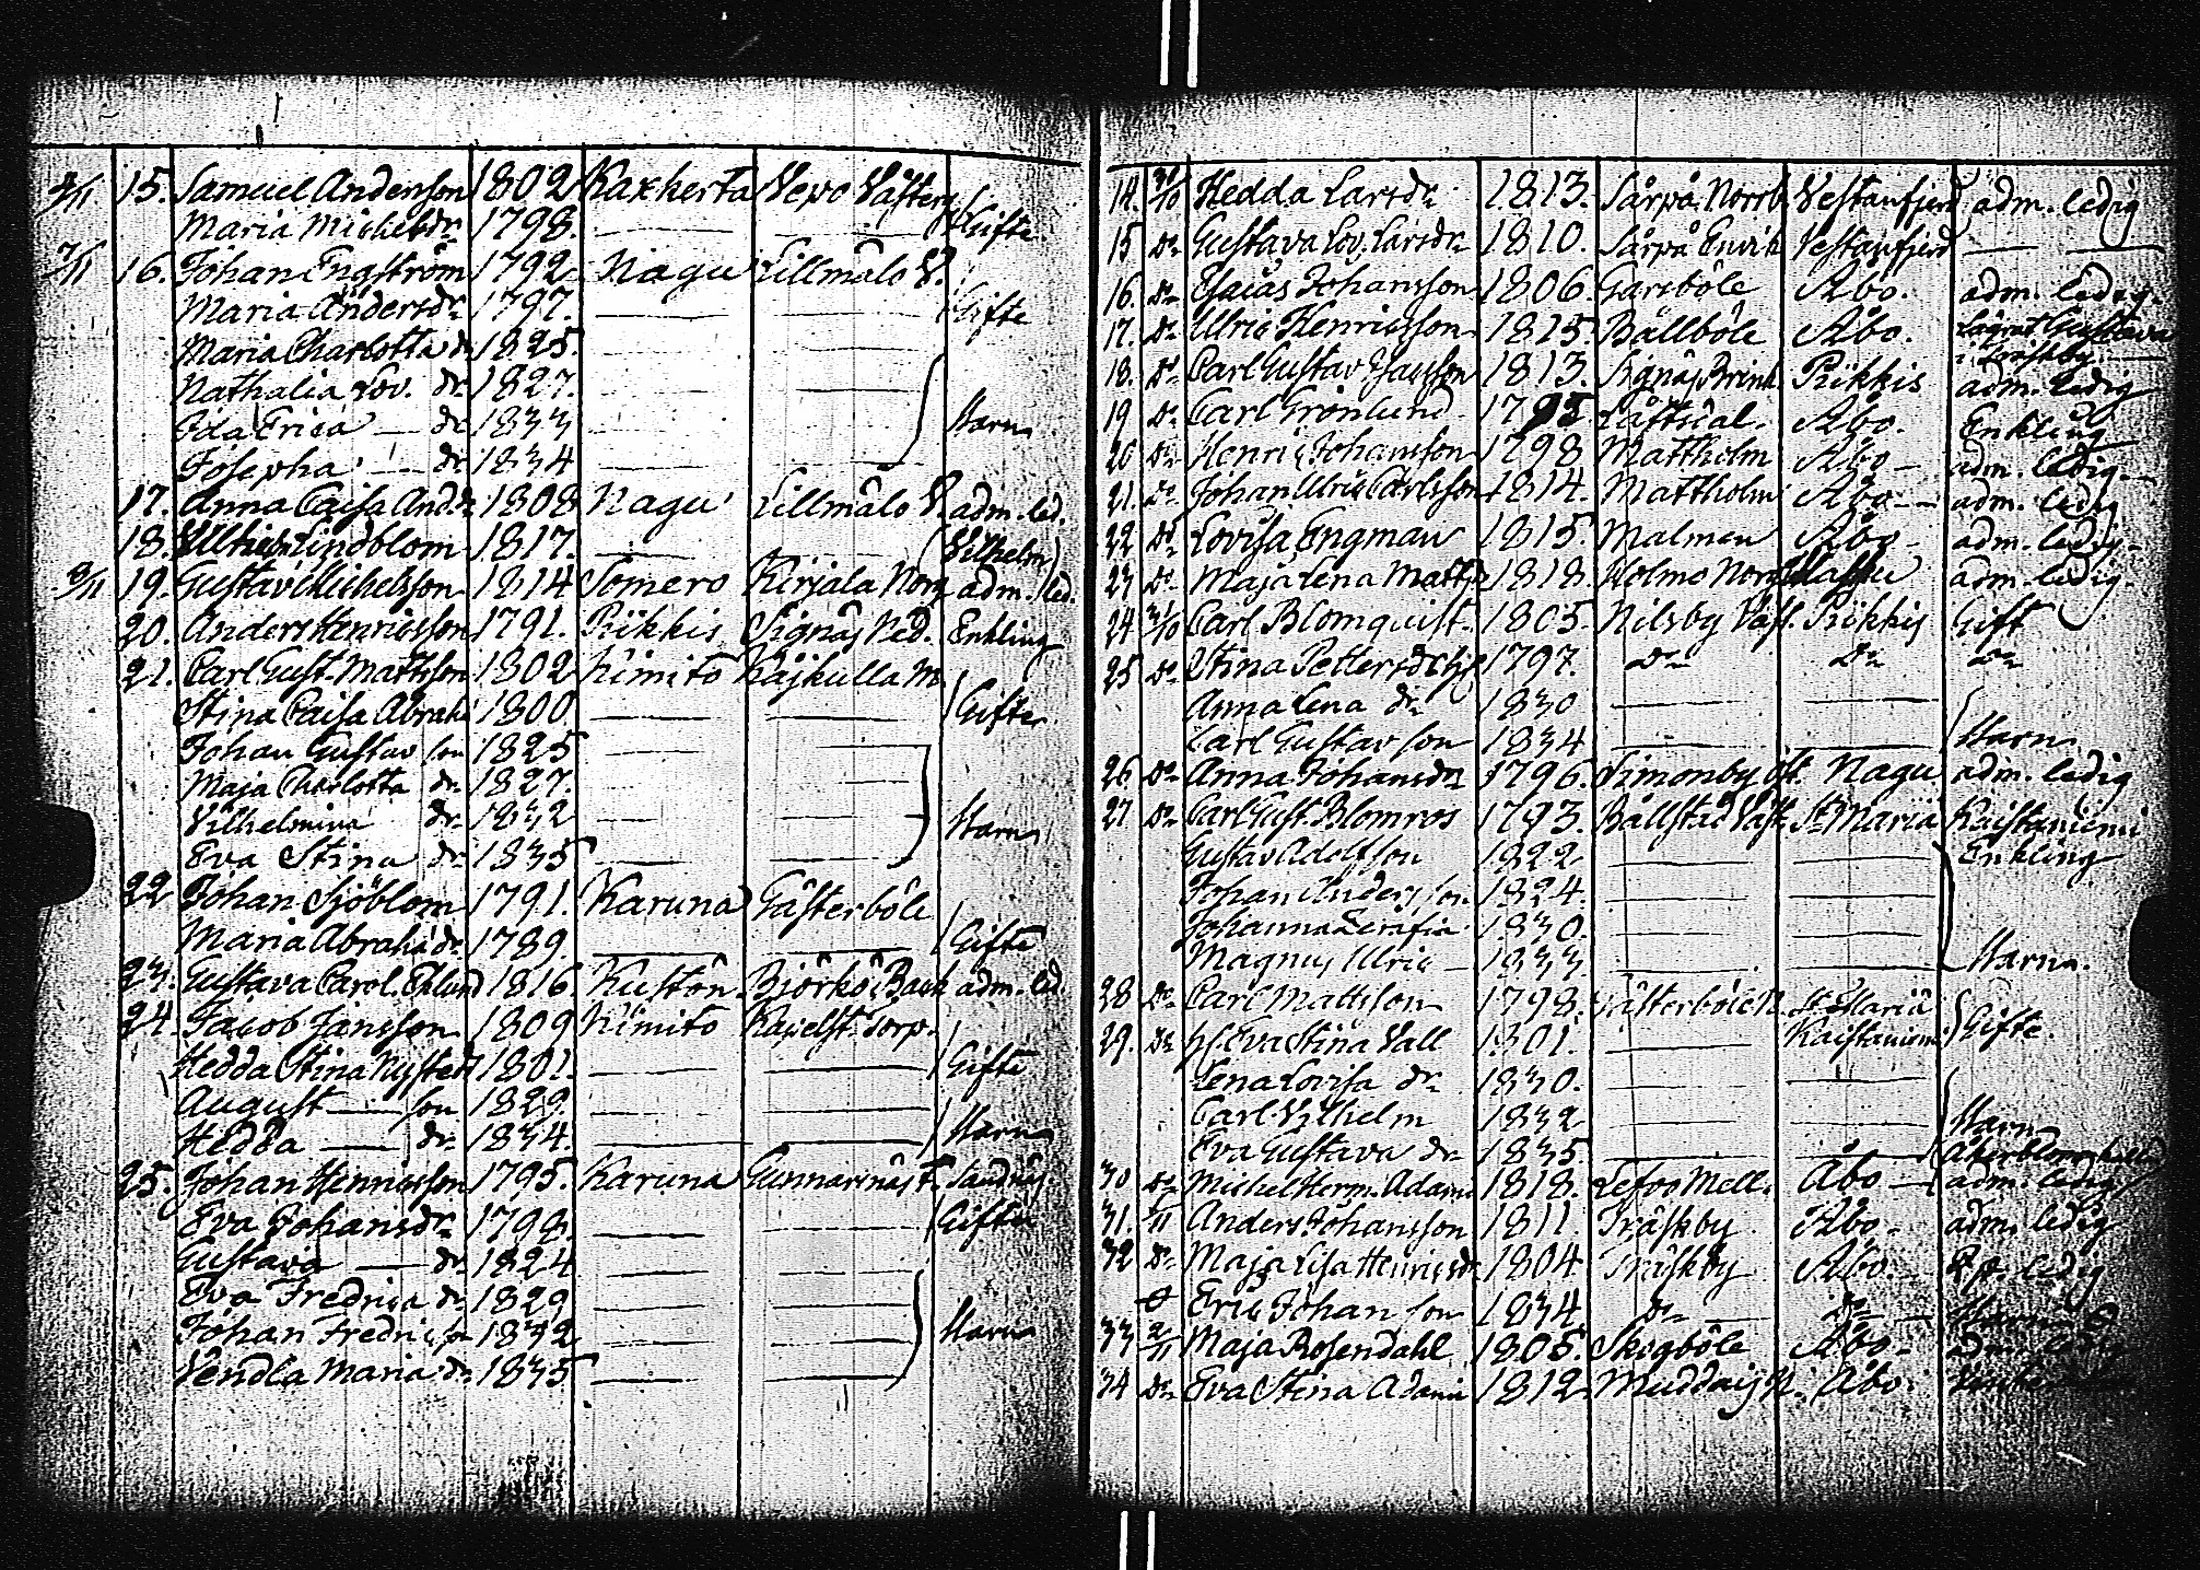 15. Samuel Andersson 1802 Kaxkerta Vepo Västerg
Maria Michelsdr 1798. Gifte
7/11 16. Johan Engström 1792 Nagu Lillmälö V.
Maria Andersdr 1797. Gifte
Maria Charlotta dr 1825.
Nathalia Lov. dr 1827.
Ida Erica dr 1833
Josepha dr 1834 Barn
17. Anna Caisa And.dr 1808 Nagu Lillmälö V. adm. led.
18. Lindblom 1817. (Vilhelm)
8/11 19. Gustav Michelsson 1814 Somero Kirjala Norg adm. led.
20. Anders Henricsson 1791. Piikkis Signäs Ned. Enkling
21. Carl Gust. Mattsson 1802 Kimito Käjkulla M
Stina Caisa Abrahs 1800. Gifte
Johan Gustav son 1825
Maja Charlotta dr 1827.
Vilhelmina dr 1832 Barn
Eva Stina dr 1835
22 Johan Sjöblom 1791. Karuna Gästerböle
Maria Abrahs dr 1789. Gifte
23. Gustava Carol. Eklund 1816. Kustön. Björkö Back adm. led.
24. Jacob Jansson 1809 Kimito Kapelst. Torp.
Hedda Stina Nystedt 1801. Gifte
August son 1829.
Hedda dr 1834. Barn
25. Johan Henricsson 1795. Karuna Gunnarsnäs T. Sandnäs.
Eva Johansdr 1798. Gifte
Gustava dr 1824
Eva Fredrica dr 1829
Johan Fredric son 1832 Barn
Vendla Maria dr 1835
14. 30/10 Hedda Larsdr 1813. Särpä Norrb. Vestanfjerd adm. ledig
15 Do Gustava Lov. Larsdr 1810. Särpä Envik Vestanfjerd
16. Do Esaias Johansson 1806. Garsböle Åbo. adm. ledig.
17. Do Ulric Henricsson 1815. Bällböle Åbo. Gustava
18. Do Carl Gustav Isacsson 1813. Signäs Brink. Piikkis adm. ledig
19 Do Carl Grönlund 1795 Läftsdal. Åbo. Enkling
20 Do Henric Johansson 1798 Mattholm Åbo adm. ledig
21. Do Johan Ulric Carlsson 1814. Mattholm Åbo adm. ledig
22 Do Lovisa Engman 1815. Malmen Åbo adm. ledig.
23 Do Maja Lena Mattsdr 1818. Holmo Norrg. adm. ledig.
24 31/10 Carl Blomquist. 1805. Nilsby Väst. Piikkis Gift
25 Do Stina Pettersdr 1797. Do Do Do
Anna Lena dr 1830
Carl Gustav son 1834 Barn
26 Do Anna Johansdr 1796. Simonby öst. Nagu adm. ledig
27 Do Carl Gust. Blomros 1793. Bällstad Väst. St. Mariä Kaistaniemi
Gustav Adolf son 1822 Enkling
Johan Anders son 1824.
Johanna Serafia 1830.
Magnus Ulric 1833 Barn.
28 Do Carl Mattsson 1798. Västerböle N. St. Mariä
29. Do h. Eva Stina Vall 1801. Kaistaniemi Gifte.
Lena Lovisa dr 1830.
Carl Vilhelm 1832
Eva Gustava dr 1835. Barn
30 Do Michel Herm. Adams 1818. Lefvo Mell. Åbo adm. ledig
31. Anders Johansson 1811. Träskby Åbo adm. ledig
32 Do Maja Lisa Henricsdr 1804 Träskby Åbo. ledig
Eric Johan son 1834 Do Do Barn
33 2/11 Maja Rosendahl 1805. Skogböle Åbo adm. ledig
34 Do Eva Stina Adami 1812. Muddais N. Åbo.